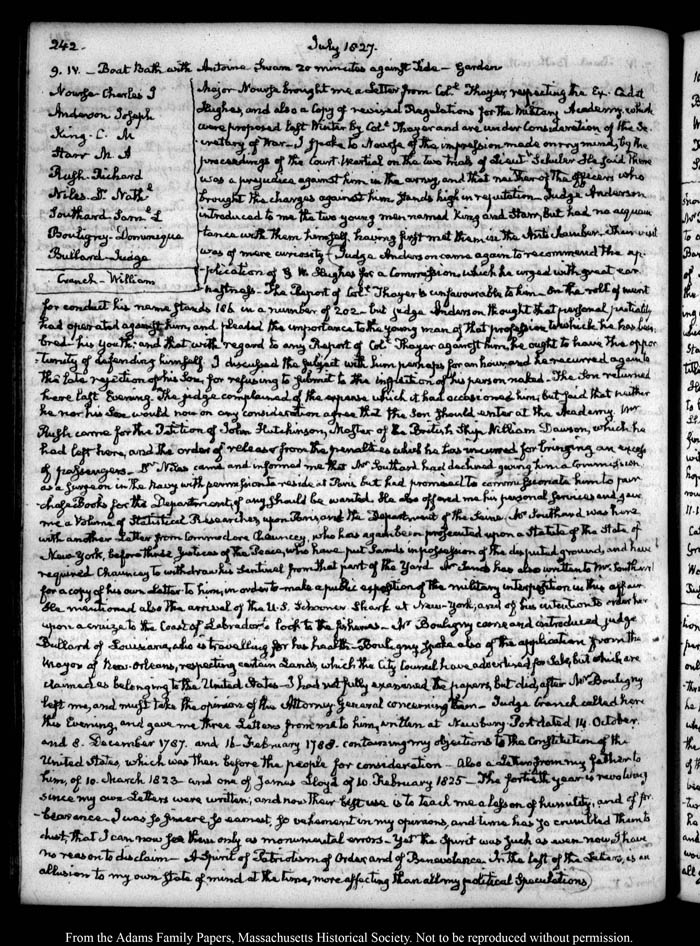 242.
July 1827.
9. IV. — Boat Bath with Antoine Swam 20 minutes against Tide — Garden
Nourse Charles J
Anderson Joseph
King. C. M
Starr M. A
Rush. Richard
Niles Dr Nathl
Southard Saml L
Bouligny-Dominique
Bullard-Judge
Cranch-William
Major Nourse brought me a Letter from Coll Thayer, respecting the Ex-Cadet
Hughes, and also a Copy of revised Regulations for the Military Academy, which
were proposed last Winter by Coll Thayer and are under Consideration of the Se-
cretary of War — I spoke to Nourse of the impression made on my mind, by the
proceedings of the Court Martial on the two trials of Lieutt Schuler He said there
was a prejudice against him in the army, and that neither of the officers who
brought the charges against him stands high in reputation — Judge Anderson
introduced to me the two young men named King and Starr, but had no acquain-
tance with them himself, having first met them in the Antichamber. Their visit
was of mere curiosity. Judge Anderson came again to recommend the ap-
plication of W Hughes for a Commission, which he urged with great ear-
nestness — The Report of Coll Thayer is unfavourable to him — On the roll of merit
for conduct his name stands 186 in a number of 202 — but judge Anderson thought that personal partiality
had operated against him, and pleaded the importance to the young man of that profession to which he has been
bred — his youth; and that with regard to any Report of Coll Thayer against him, he ought to have the oppor-
tunity of defending himself. I discussed the subject with him perhaps for an hour, and he recurred again to
the late rejection of his Son, for refusing to submit to the inspection of his person naked — The Son returned
here last Evening. The judge complained of the expense which it had occasioned him; but said that neither
he nor his Son would now on any consideration agree that the Son should enter at the Academy. Mr
Rush came for the Petition of John Hutchinson, Master of the British Ship William Dawson, which he
had left here, and the order of release from the penalties which he has incurred for bringing an excess
of passengers — Dr Niles came and informed me that Mr Southard had declined giving him a Commission
as a Surgeon in the Navy with permission to reside at Paris but had promised to commission him to pur-
chase Books for the Department, if any should be wanted. He also offered me his personal services and gave
me a Volume of Statistical Researches upon Paris, and the Department of the Seine. Mr Southard was here
with another Letter from Commodore Chauncey, who has again been prosecuted upon a Statute of the State of
New-York, before three Justices of the Peace, who have put Sands in possession of the disputed ground, and have
required Chauncey to withdraw his Sentinel from that part of the Yard. Mr Sands has also written to Mr Southard
for a copy of his own Letter to him, in order to make a public exposition of the military interposition in this affair
He mentioned also the arrival of the U.S. Schooner Shark at New-York, and of his intention to order her
upon a cruize to the Coast of Labrador to look to the fisheries. — Mr Bouligny came and introduced judge
Bullard of Louisiana, who is travelling for his health — Bouligny spoke also of the application from the
Mayor of New-Orleans, respecting certain Lands, which the City Council have advertised for Sale, but which are
claimed as belonging to the United States — I had not fully examined the papers, but did, after Mr Bouligny
left me, and must take the opinion of the Attorney General concerning them — Judge Cranch called here
this Evening, and gave me three Letters from me to him, written at Newbury Port dated 14. October.
and 8. December 1787. and 16. February 1788. containing my objections to the Constitution of the
United States, which was then before the people for consideration — Also a Letter from my father to
him, of 10. March 1823 and one of James Lloyd of 10 February 1825 — The fortieth year is revolving
since my own Letters were written, and now their best use is to teach me a lesson of humility, and of for-
bearance — I was so sincere, so earnest, so vehement in my opinions, and time has so crumbled them to
dust, that I can now see them only as monumental errors — Yet the Spirit was such as even now I have
no reason to disclaim — A Spirit of Patriotism of Order, and of Benevolence. In the last of the Letters, is an
allusion to my own state of mind at the time, more affecting than all my political Speculations
From the Adams Family Papers, Massachusetts Historical Society. Not to be reproduced without permission.